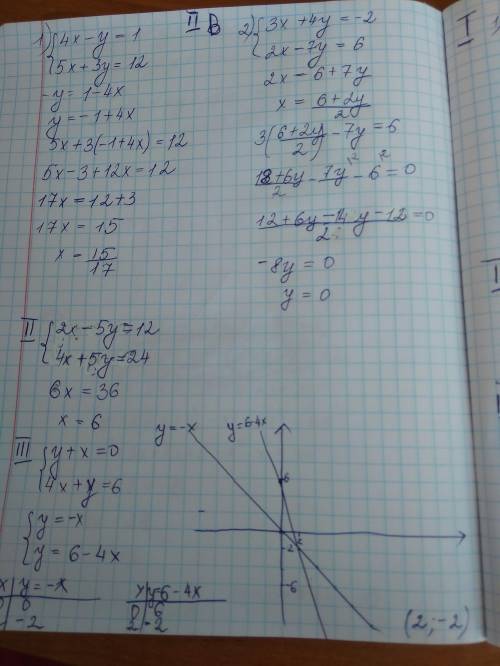 II B
1) { 4x - y = 1
5x + 3y = 12
-y = 1 - 4x
y = -1 + 4x
5x + 3(-1 + 4x) = 12
5x - 3 + 12x = 12
17x = 12 + 3
17x = 15
x = 15/17
2) { 3x + 4y = -2
2x - 7y = 6
2x = 6 + 7y
x = 6+2y/2
3(6+2y/2) - 7y = 6
18+6y/2 - 7y - 6 = 0
12+6y-14y-12/2 = 0
-8y = 0
y = 0
II { 2x - 5y = 12
4x + 5y = 24
6x = 36
x = 6
III { y + x = 0
4x + y = 6
{ y = -x
y = 6 - 4x
x | y = -x
0 | 0
2 | -2
x | y = 6 - 4x
0 | 6
2 | -2
y = -x
y = 6-4x
6
2
-2
-6
(2; -2)
I